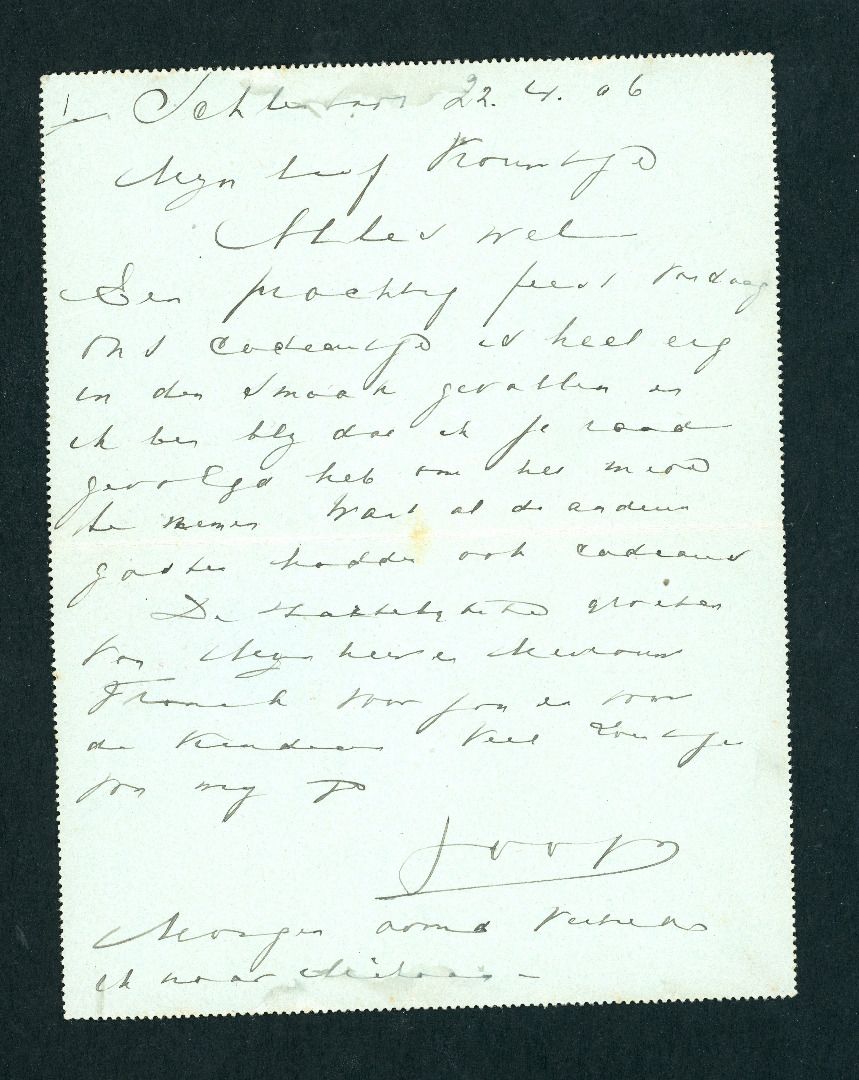 22.4.06
Myn lief Vrouwtje
Alles wel
Een prachtig feest vandaag
ons cadeautje is heel erg
in den smaak gevallen en
ik ben bly dat ik je raad
gevolgd heb om het mede
te nemen want al de andere
gasten hadden ook cadeaus
De hartelykste groeten
van Mynheer en Mevrouw
Franck voor jou en voor
de kinderen Veel zoentjes
van my
Joop
Morgen avond vertrek
ik naar